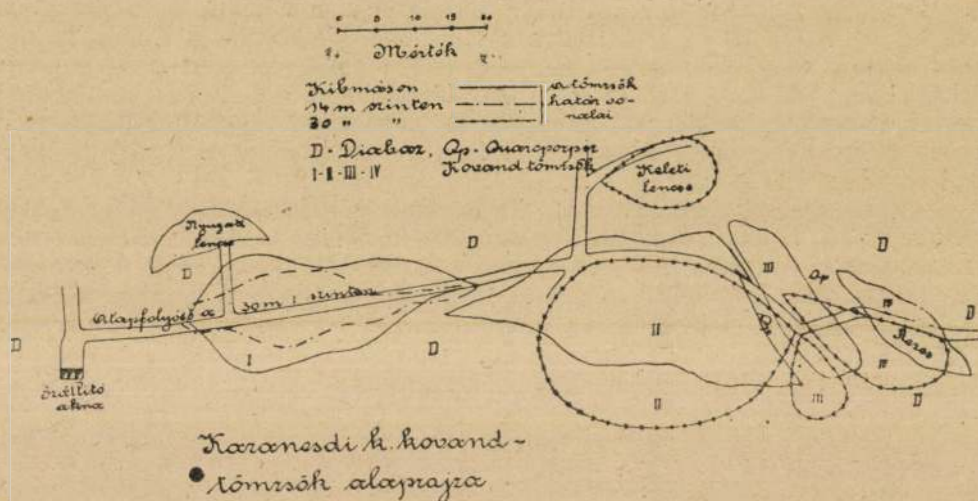 0 5 10 15 20
Mérték
Kibmáson
14 m szinten
30 " "
a tömzsök
határ vo-
nalai
D - Diabaz, Qp - Quarcporpir
I - II - III - IV Kovand tömzsök
Keleti
lencse
Nyugati
lencse
D
D
D
III
Qp
Alapfolyosó a 30 m szinten
II
Qp
IV
D
D
I
D
IV
D
II
III
Szállító
akna
Karanesdi k. kovand -
tömzsök alaprajza